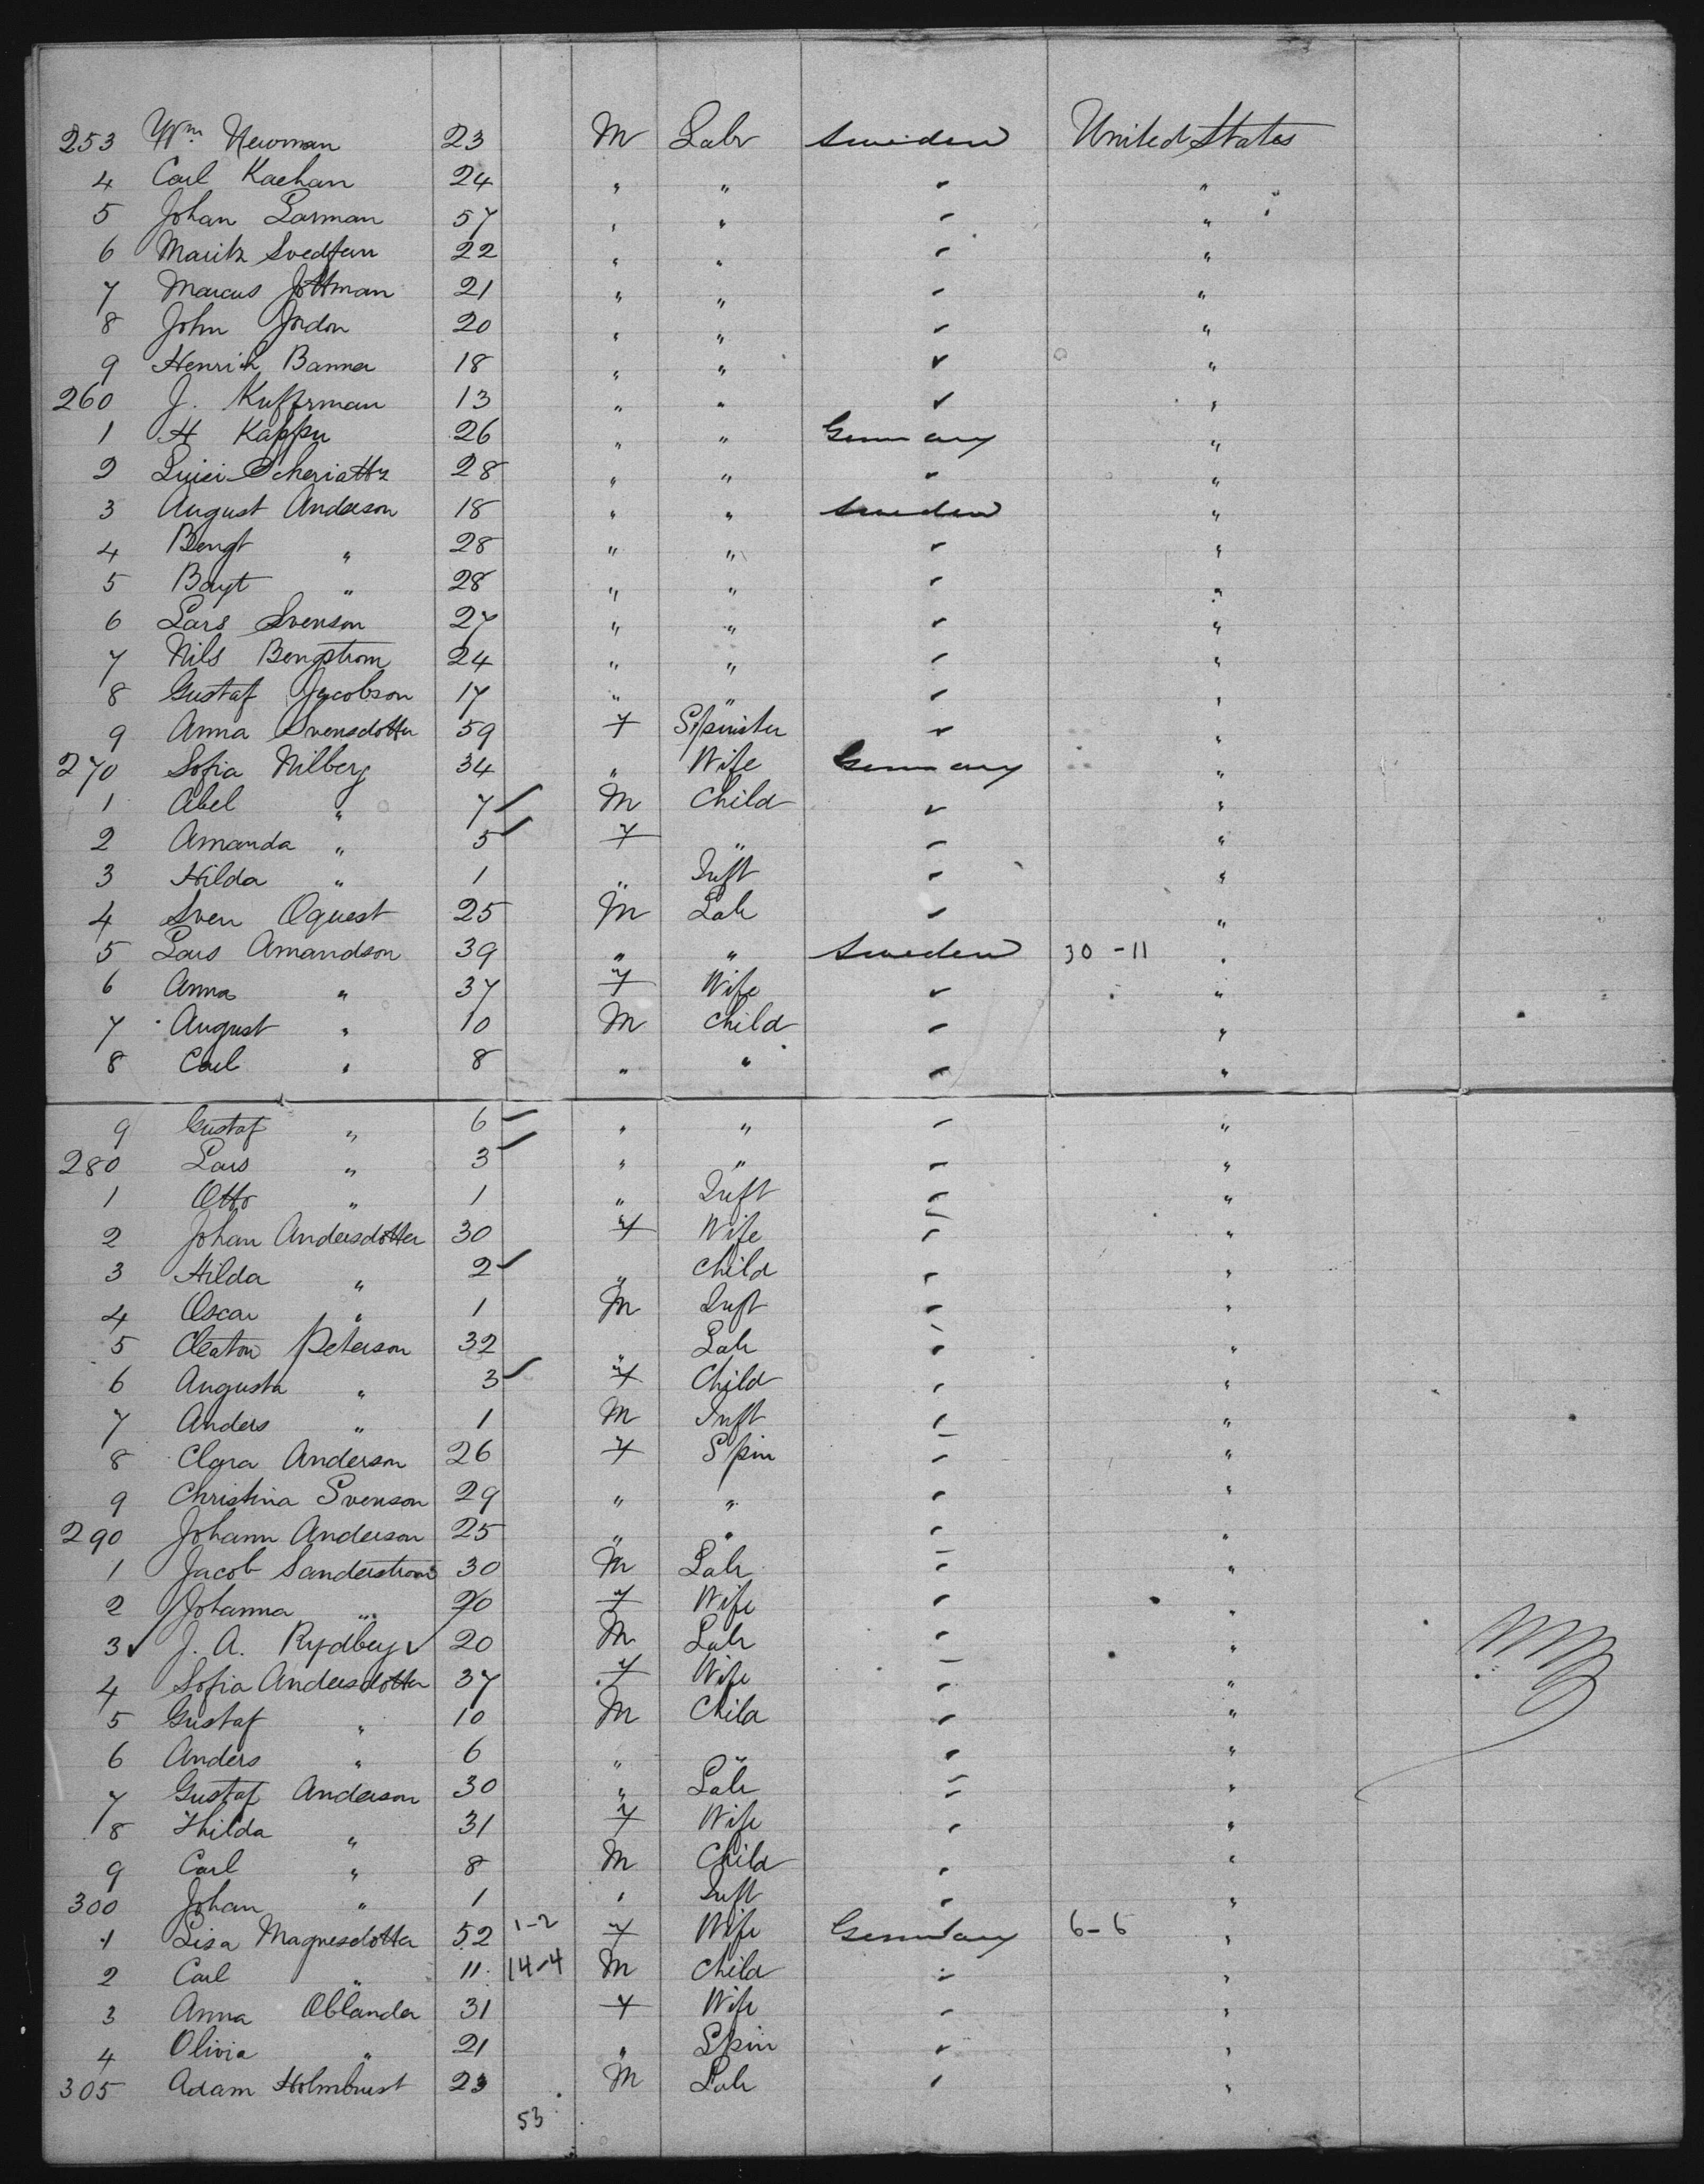 253 Wm Newman 23 M Labr Sweden United States
4 Carl Kachan 24 " " " "
5 Johan Larman 57 " " " "
6 Mauritz 22 " " " "
7 Marcus Jottman 21 " " " "
8 John Jordon 20 " " " "
9 Henrich Banner 18 " " " "
260 J. Kuffrman 13 " " " "
1 H Kappu 26 " " Germany "
2 28 " " " "
3 August Anderson 18 " " Sweden "
4 Bengt " 28 " " " "
5 Bayt " 28 " " " "
6 Lars Svenson 27 " " " "
7 Nils Bengstrom 24 " " " "
8 Gustaf Jacobson 17 " " " "
9 Anna Svensdotter 59 F Spinster " "
270 Sofia Nilberg 34 " Wife Germany "
1 Abel " 7 M Child " "
2 Amanda " 5 F " " "
3 Hilda " 1 " Inft " "
4 Sven Oquest 25 M Labr " "
5 Lars Amandson 39 " " Sweden 30-11 "
6 Anna " 37 F Wife " "
7 August " 10 M Child " "
8 Carl " 8 " " " "
9 Gustaf " 6 " " " "
280 Lars " 3 " " " "
1 Otto " 1 " Inft " "
2 Johan Andersdotter 30 F Wife " "
3 Hilda " 2 " Child " "
4 Oscar " 1 M Inft " "
5 Peterson 32 " Labr " "
6 Augusta " 3 F Child " "
7 Anders " 1 M Inft " "
8 Clara Anderson 26 F Spin " "
9 Christina Svenson 29 " " " "
290 Johann Anderson 25 " " " "
1 Jacob Sanderstrom 30 M Labr " "
2 Johanna " 20 F Wife " "
3 J. A. Rydberg 20 M Labr " "
4 Sofia Andersdotter 37 F Wife " "
5 Gustaf " 10 M Child " "
6 Anders " 6 " " " "
7 Gustaf Anderson 30 " Labr " "
8 Thilda " 31 F Wife " "
9 Carl " 8 M Child " "
300 Johan " 1 " Inft " "
1 Lisa Magnesdotter 52 1-2 F Wife Germany 6-6 "
2 Carl " 11 14-4 M Child " "
3 Anna Oblander 31 F Wife " "
4 Olivia " 21 " Spin " "
305 Adam Holmbuest 23 M Labr " "
53